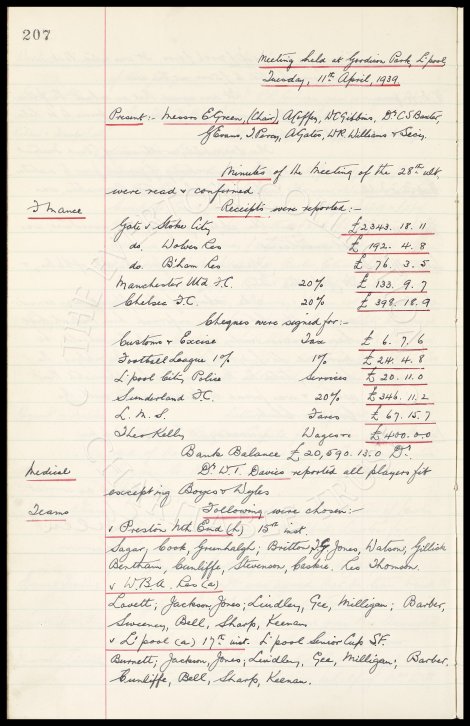 207
Meeting held at Goodison Park, L'pool,
Tuesday, 11th April, 1939
Present:- Messrs E. Green, (Chair) A. Coffey, W.C. Gibbins, Dr C.S. Baxter,
G. Evans, J. Percy, A. Gates, W.R. Williams & Secy.
Minutes of the Meeting of the 28th ult.
were read & confirmed
Finance
Receipts were reported:-
Gate v Stoke City £2343. 18. 11
do. Wolves Res £ 192. 4. 8
do. B'ham Res £ 76. 3. 5
Manchester Utd F.C. 20% £ 133. 9. 7
Chelsea F.C. 20% £ 398. 18. 9
Cheques were signed for:-
Customs & Excise Tax £ 6. 7/6
Football League 1% 1% £ 24. 4. 8
L'pool City Police Services £ 20. 11. 0
Sunderland F.C. 20% £ 346. 11. 2
L.M.S. Fares £ 67. 15. 7
Theo Kelly Wages &c £400. 0. 0
Bank Balance £20,590. 13. 0 Dr.
Medical
Dr. W.T. Davies reported all players fit
excepting Boyes & Wyles
Teams
Following were chosen:-
v Preston Nth End (h) 15th inst.
Sagar, Cook, Greenhalgh; Britton, T.G. Jones, Watson, Gillick
Bentham, Cunliffe, Stevenson, Caskie. Res Thomson.
v W.B.A. Res (a)
Lovett; Jackson, Jones; Lindley, Gee, Milligan; Barber,
Sweeney, Bell, Sharp, Keenan
v L'pool (a) 17th inst. L'pool Senior Cup S.F.
Burnett; Jackson, Jones; Lindley, Gee, Milligan; Barber.
Cunliffe, Bell, Sharp, Keenan.